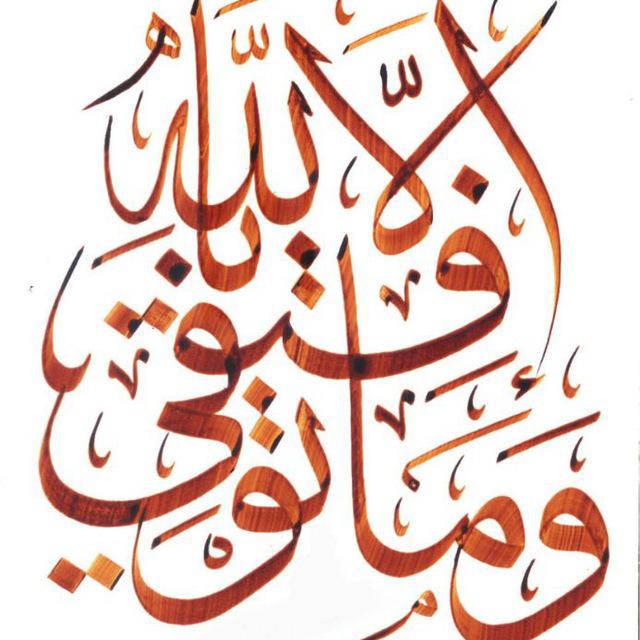 وَمَا تَوْفِيقِي إِلَّا بِاللَّهُ